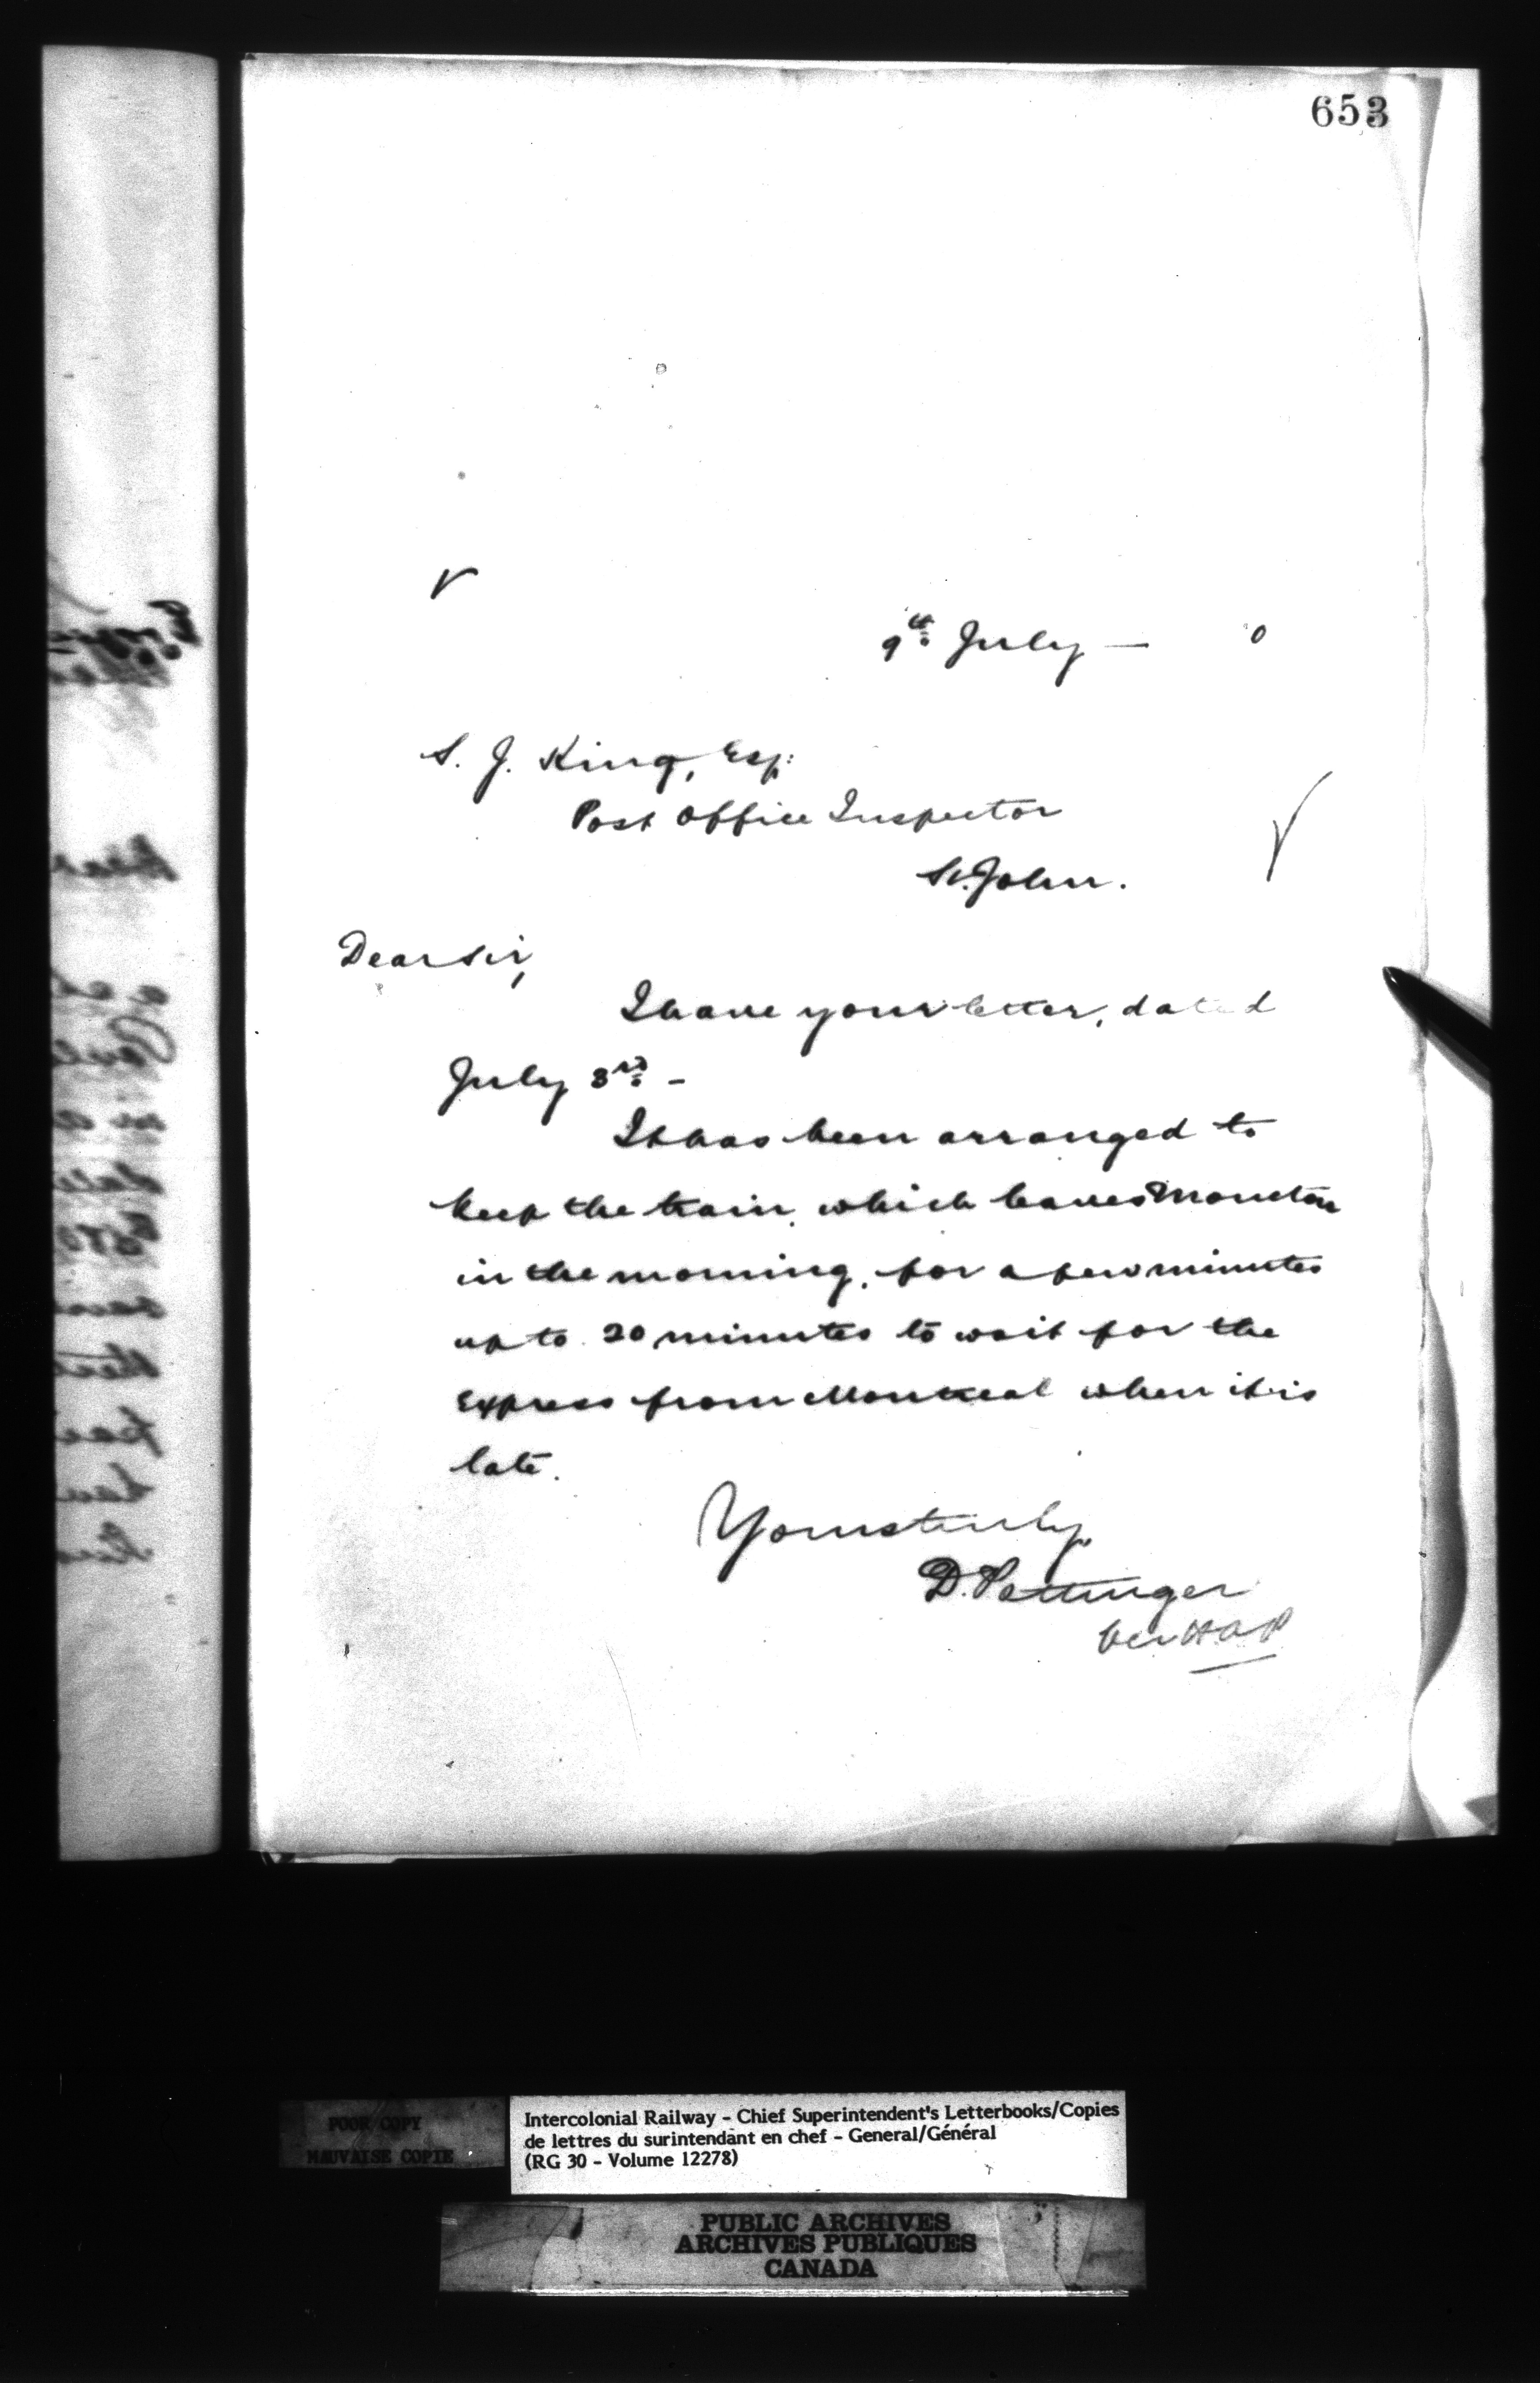 653
9th July — 0
S. J. King, Esq:
Post Office Inspector
St. John.
Dear Sir,
I have your letter, dated
July 3rd –
It has been arranged to
keep the train, which leaves Moncton
in the morning, for a few minutes
up to 20 minutes to wait for the
Express from Montreal when it is
late.
Yours truly,
D. Pottinger
per H A P
POOR COPY
MAUVAISE COPIE
Intercolonial Railway - Chief Superintendent's Letterbooks/Copies
de lettres du surintendant en chef - General/Général
(RG 30 - Volume 12278)
PUBLIC ARCHIVES
ARCHIVES PUBLIQUES
CANADA